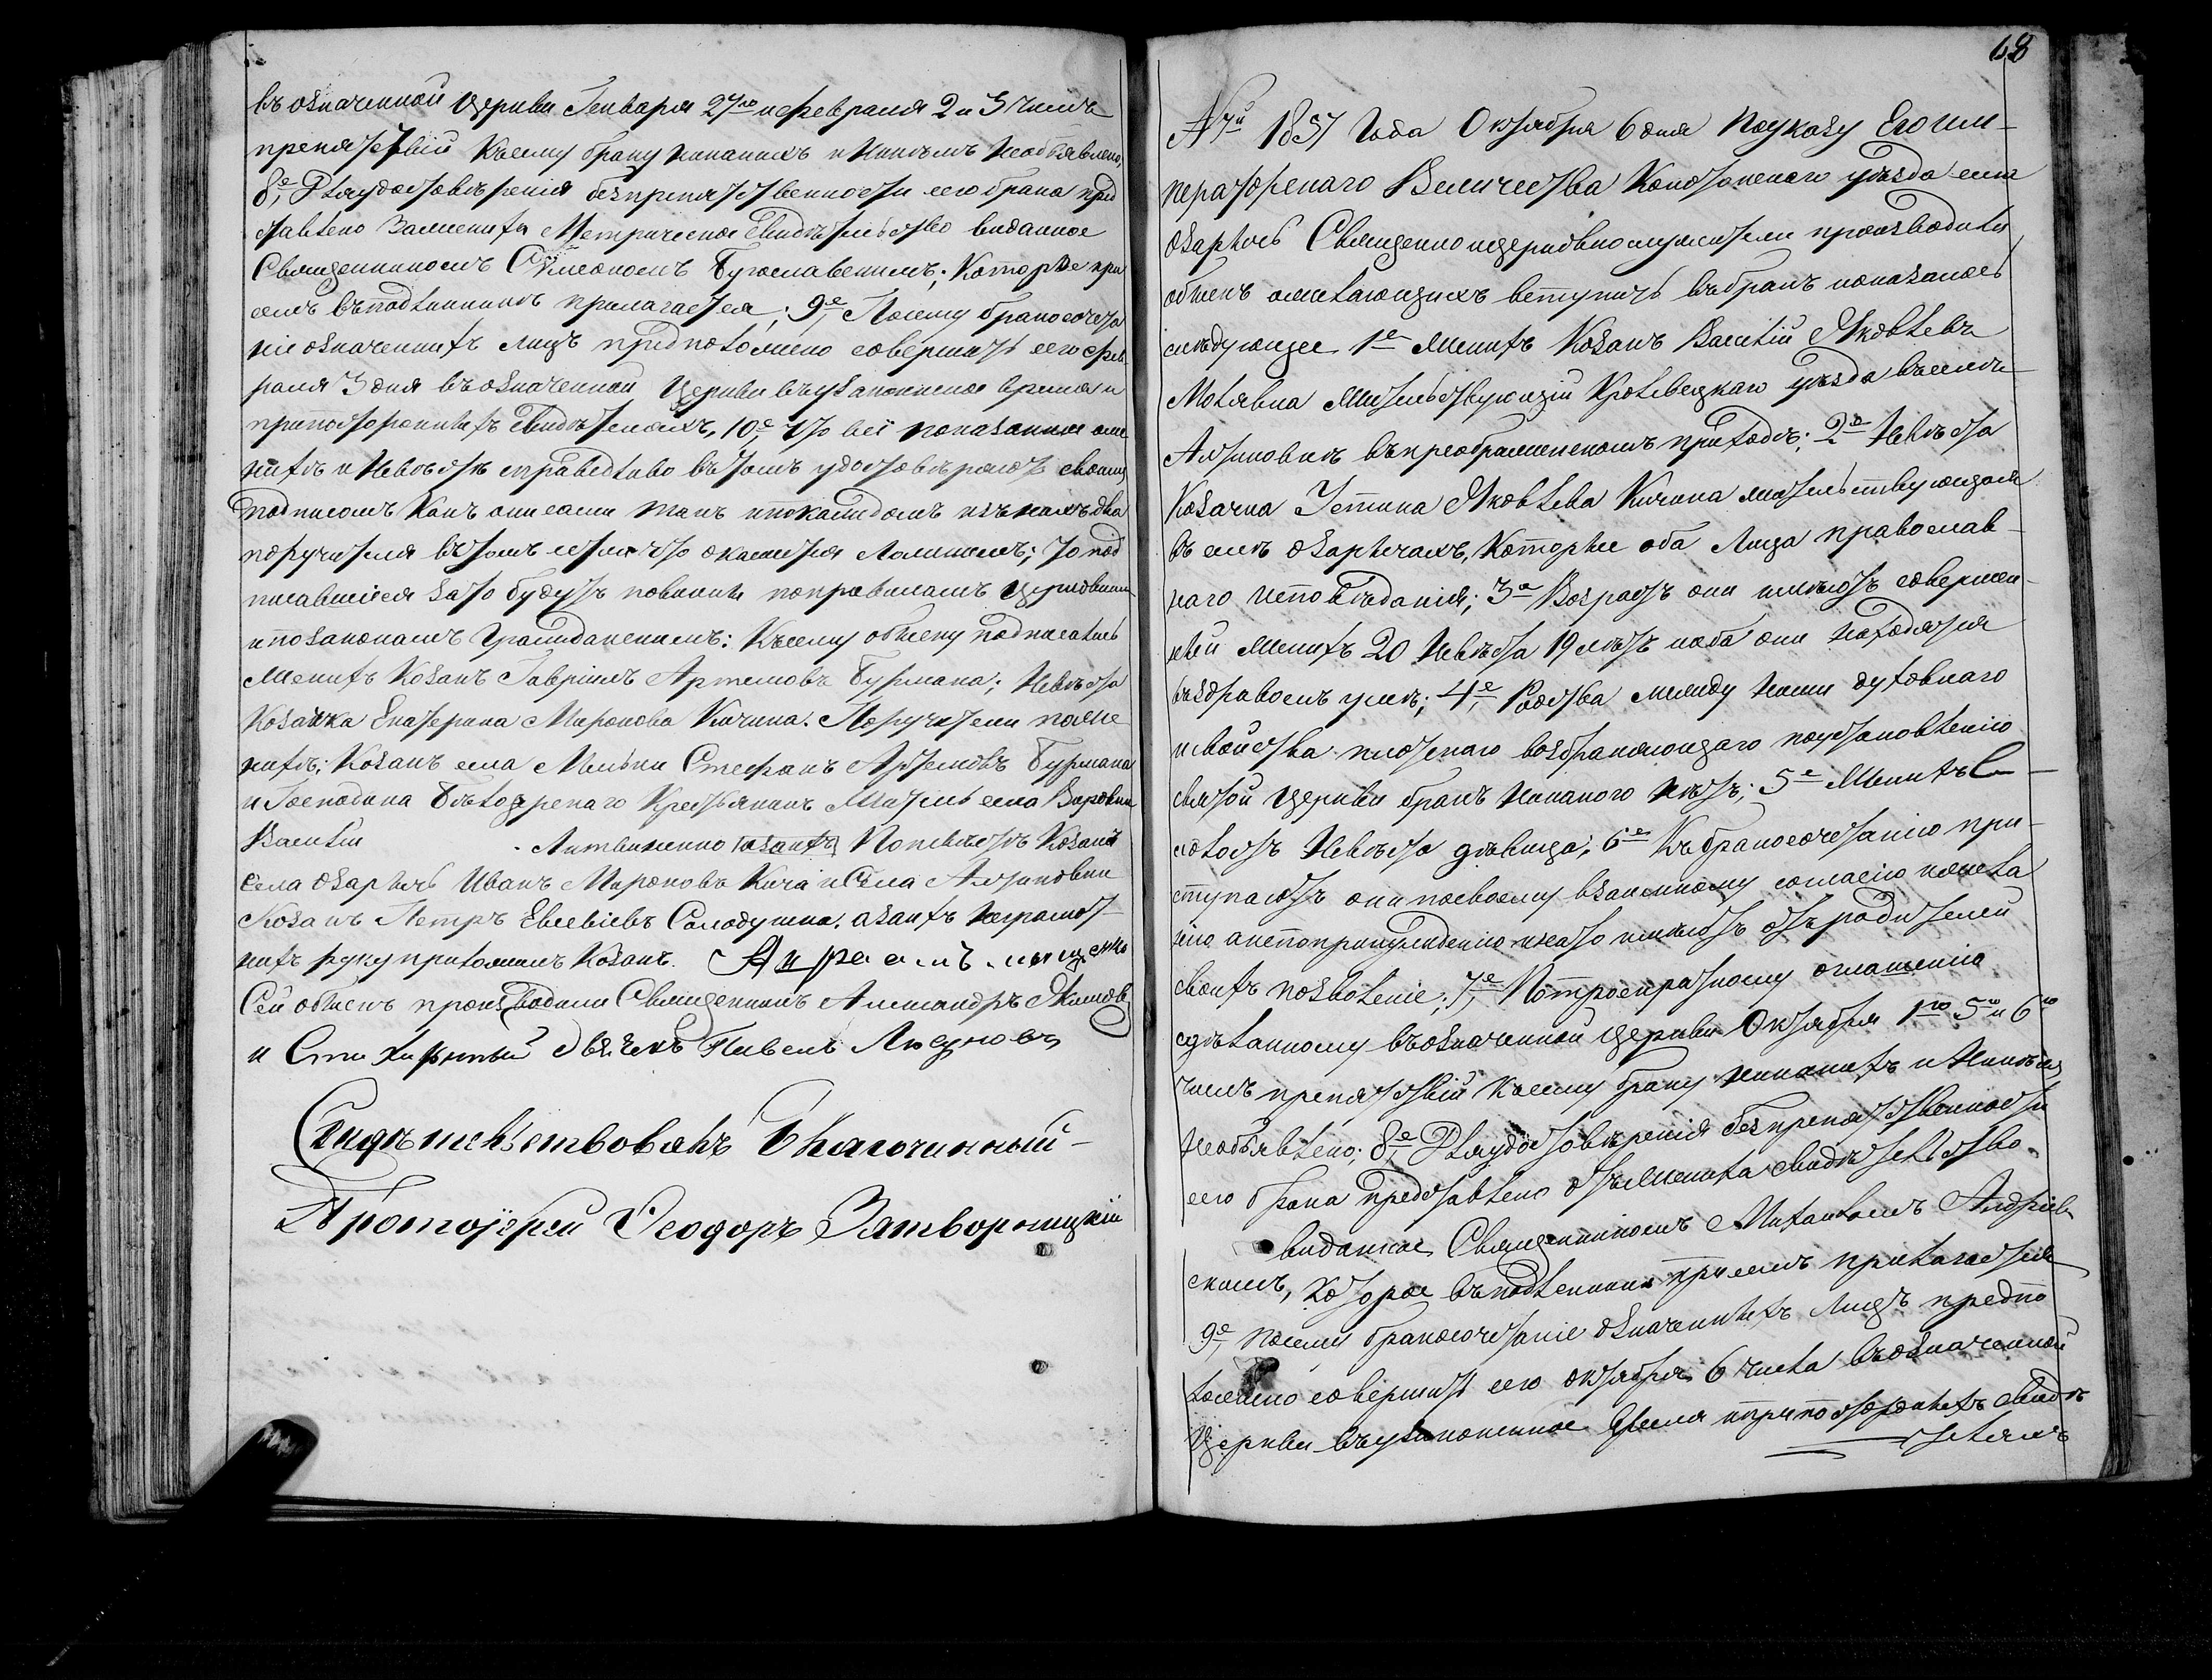 въ означенной Церкви Генваря 27го и февраля 2 и 3 числъ
препятствій къ сему браку никакихъ и никѣмъ необъявлено,
8е, Для удостовѣренія безпрепятственности сего брака пред
ставлено за жениха Метрическое свидѣтельство виданное
Священникомъ Симеономъ Бугославскимъ; Которѣе при
семъ въ подлинникѣ прилагается; 9е, Посему бракосочета
ніе означеннихъ лицъ предположено совершить сего фев
раля 3 дня въ означенной Церкви въ узаконенное время и
при постороннихъ свидѣтеляхъ, 10е, Что всі показанние о же
нихѣ и Невѣстѣ справедливо въ томъ удостовѣряютъ своимъ
подписомъ Какъ они сами такъ и по каждомъ изъ нихъ два
поручителя въ томъ если что окажется ложнимъ; то под
писавшіеся за то будутъ повинни по правиламъ Церковнимъ
и по законамъ Гражданскимъ: Къ сему обыску подписались
Женихъ Козакъ Гавріилъ Артемовъ Бурмака; Невѣста
Козачка Екатерина Миронова Кичина. Поручители по же
нихѣ; Козакъ села Стефанъ Артемовъ Бурмака
и Господина Крестьянинъ Житель села
Василій Литвиненко По невѣстѣ Козакъ
села Озаричь Иванъ Мироновъ Кича и Села Алтиновки
Козакъ Петръ Евсевіевъ Солодушка. а за нихъ неграмот
нихъ руку приложилъ Козакъ.
Сей обыскъ производили Священникъ Александръ Якимов
и Стихарный дьячекъ Павелъ
Свидѣтельствовалъ Благочинный
Протоіерей Ѳеодоръ Затворницкій
68
№ 7й 1857 Года Октября 6 дня По указу Его им-
ператорскаго Величества Конотопскаго уѣзда села
Озаричь Священно и церковнослужители производили
обыскъ о желающихъ вступить въ бракъ и оказалось
слѣдующее 1е Женихъ Козакъ Василій Яковлевъ
жительствующій Кролевецкаго уѣзда въ селѣ
Алтиновкѣ въ преображенскомъ приходѣ; 2е Невѣста
Козачка Яковлева Кичина жительствующая
въ селѣ Озаричахъ, Которые оба Лица православ-
наго исповѣданія; 3е Возрастъ они имѣютъ совершен-
ній Женихъ 20 Невѣста 19 лѣтъ и оба они находятся
въ здравомъ умѣ; 4е, Родства между ними духовнаго
и свойства плотскаго возбраняющаго по установленію
святой Церкви бракъ никакого нѣтъ; 5е Женихъ
холостъ Невѣста дѣвица; 6е Къ бракосочетанію при-
ступаютъ они по своему взаимному согласію и желa
нію а не по принужденію и на то имѣютъ отъ родителей
своихъ позволеніе; 7е, По троекратному оглашенію
сдѣланному въ означенной Церкви Октября 1го 5 и 6го
числъ препятствій къ сему браку никакихъ и никѣмъ
необъявлено; 8е, Для удостовѣренія безпрепятственности
сего брака представлено отъ жениха свидѣтельство
виданное Священникомъ Михаиломъ Андріев
скимъ, которое въ подлинникѣ при семъ прилагается
9е, посему бракосочетаніе означеннихъ лицъ предпо
ложено совершить сего октября 6 числа въ означенной
Церкви въ узаконенное время и при постороннихъ свидѣ
теляхъ